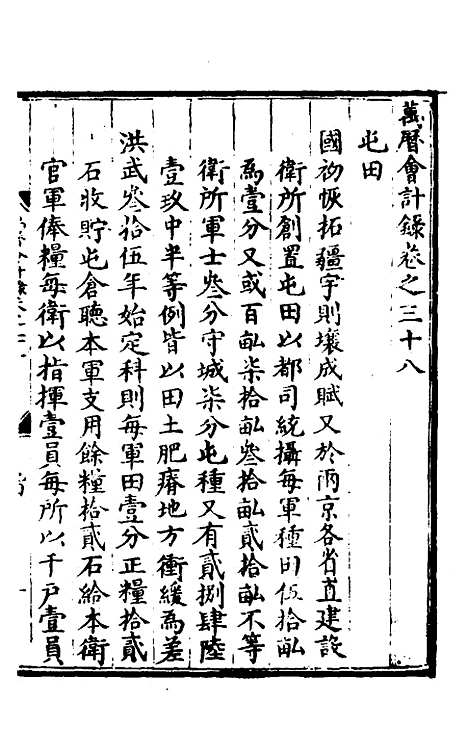 萬曆會計錄卷之三十八
屯田
國初恢拓疆宇則壤成賦又於兩京各省直建設
衛所創置屯田以都司統攝每軍種田伍拾畝
爲壹分又或百畝柒拾畝叄拾畝貳拾畝不等
衛所軍士叄分守城柒分屯種又有貳捌肆陸
壹玖中半等例皆以田土肥瘠地方衝緩爲差
洪武叄拾伍年始定科則每軍田壹分正糧拾貳
石收貯屯倉聽本軍支用餘糧拾貳石給本衛
官軍俸糧每衛以指揮壹員每所以千戶壹員